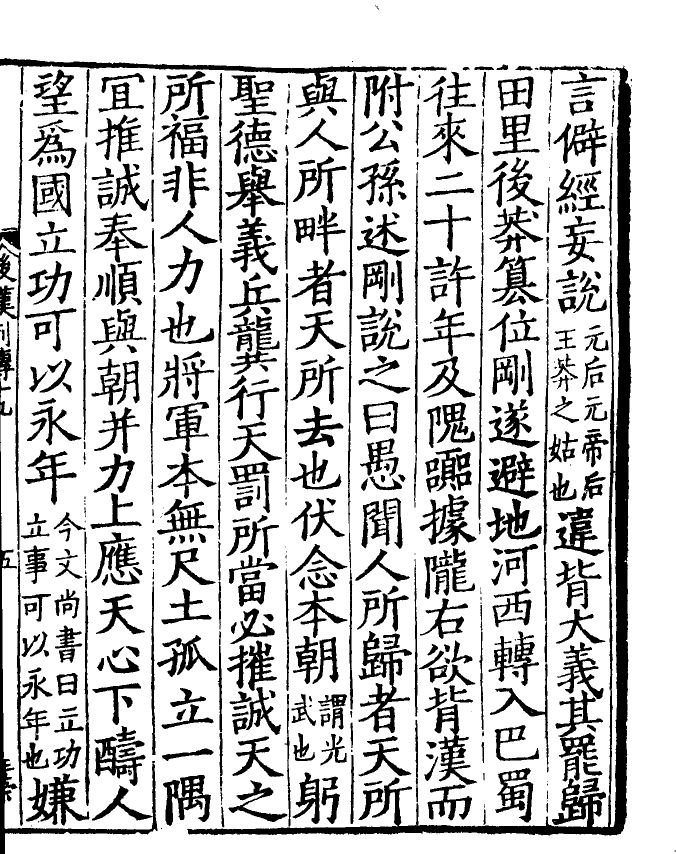 言僻經妄說元后元帝后王莽之姑也違背大義其罷歸
田里後莽篡位剛遂避地河西轉入巴蜀
往來二十許年及隗囂據隴右欲背漢而
附公孫述剛說之曰愚聞人所歸者天所
與人所畔者天所去也伏念本朝謂光武也躬
聖德舉義兵龔行天罰所當必摧誠天之
所福非人力也將軍本無尺土孤立一隅
宜推誠奉順與朝并力上應天心下醻人
望爲國立功可以永年今文尚書曰立功立事可以永年也嫌
後漢列傳十九 五